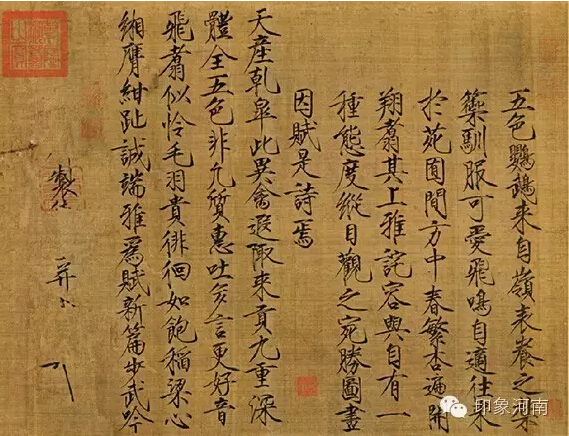 五色鸚鵡來自嶺表養之禁
籞馴服可愛飛鳴自適往來
於苑囿間方中春繁杏遍開
翔翥其上雅詫容與自有一
種態度縱目觀之宛勝圖畫
因賦是詩焉
天產乾皐此異禽遐陬來貢九重深
體全五色非凡質惠吐多言更好音
飛翥似怜毛羽貴徘徊如飽稻粱心
緗膺紺趾誠端雅爲賦新篇步武吟
製
并
印象河南